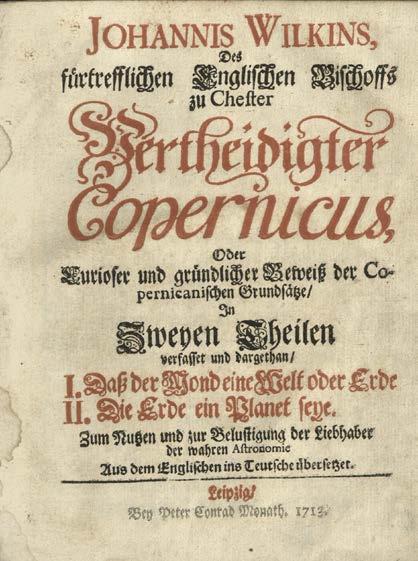 JOHANNIS WILKINS,
Des
fürtrefflichen Englischen Bischoffs
zu Chester
Vertheidigter
Copernicus,
Oder
Curioser und gründlicher Beweiß der Co-
pernicanischen Grundsätze/
In
Zweyen Theilen
verfasset und dargethan/
I. Daß der Mond eine Welt oder Erde
II. Die Erde ein Planet seye.
Zum Nutzen und zur Belustigung der Liebhaber
der wahren Astronomie
Aus dem Englischen ins Teutsche übersetzet.
Leipzig/
Bey Peter Conrad Monath. 1713.